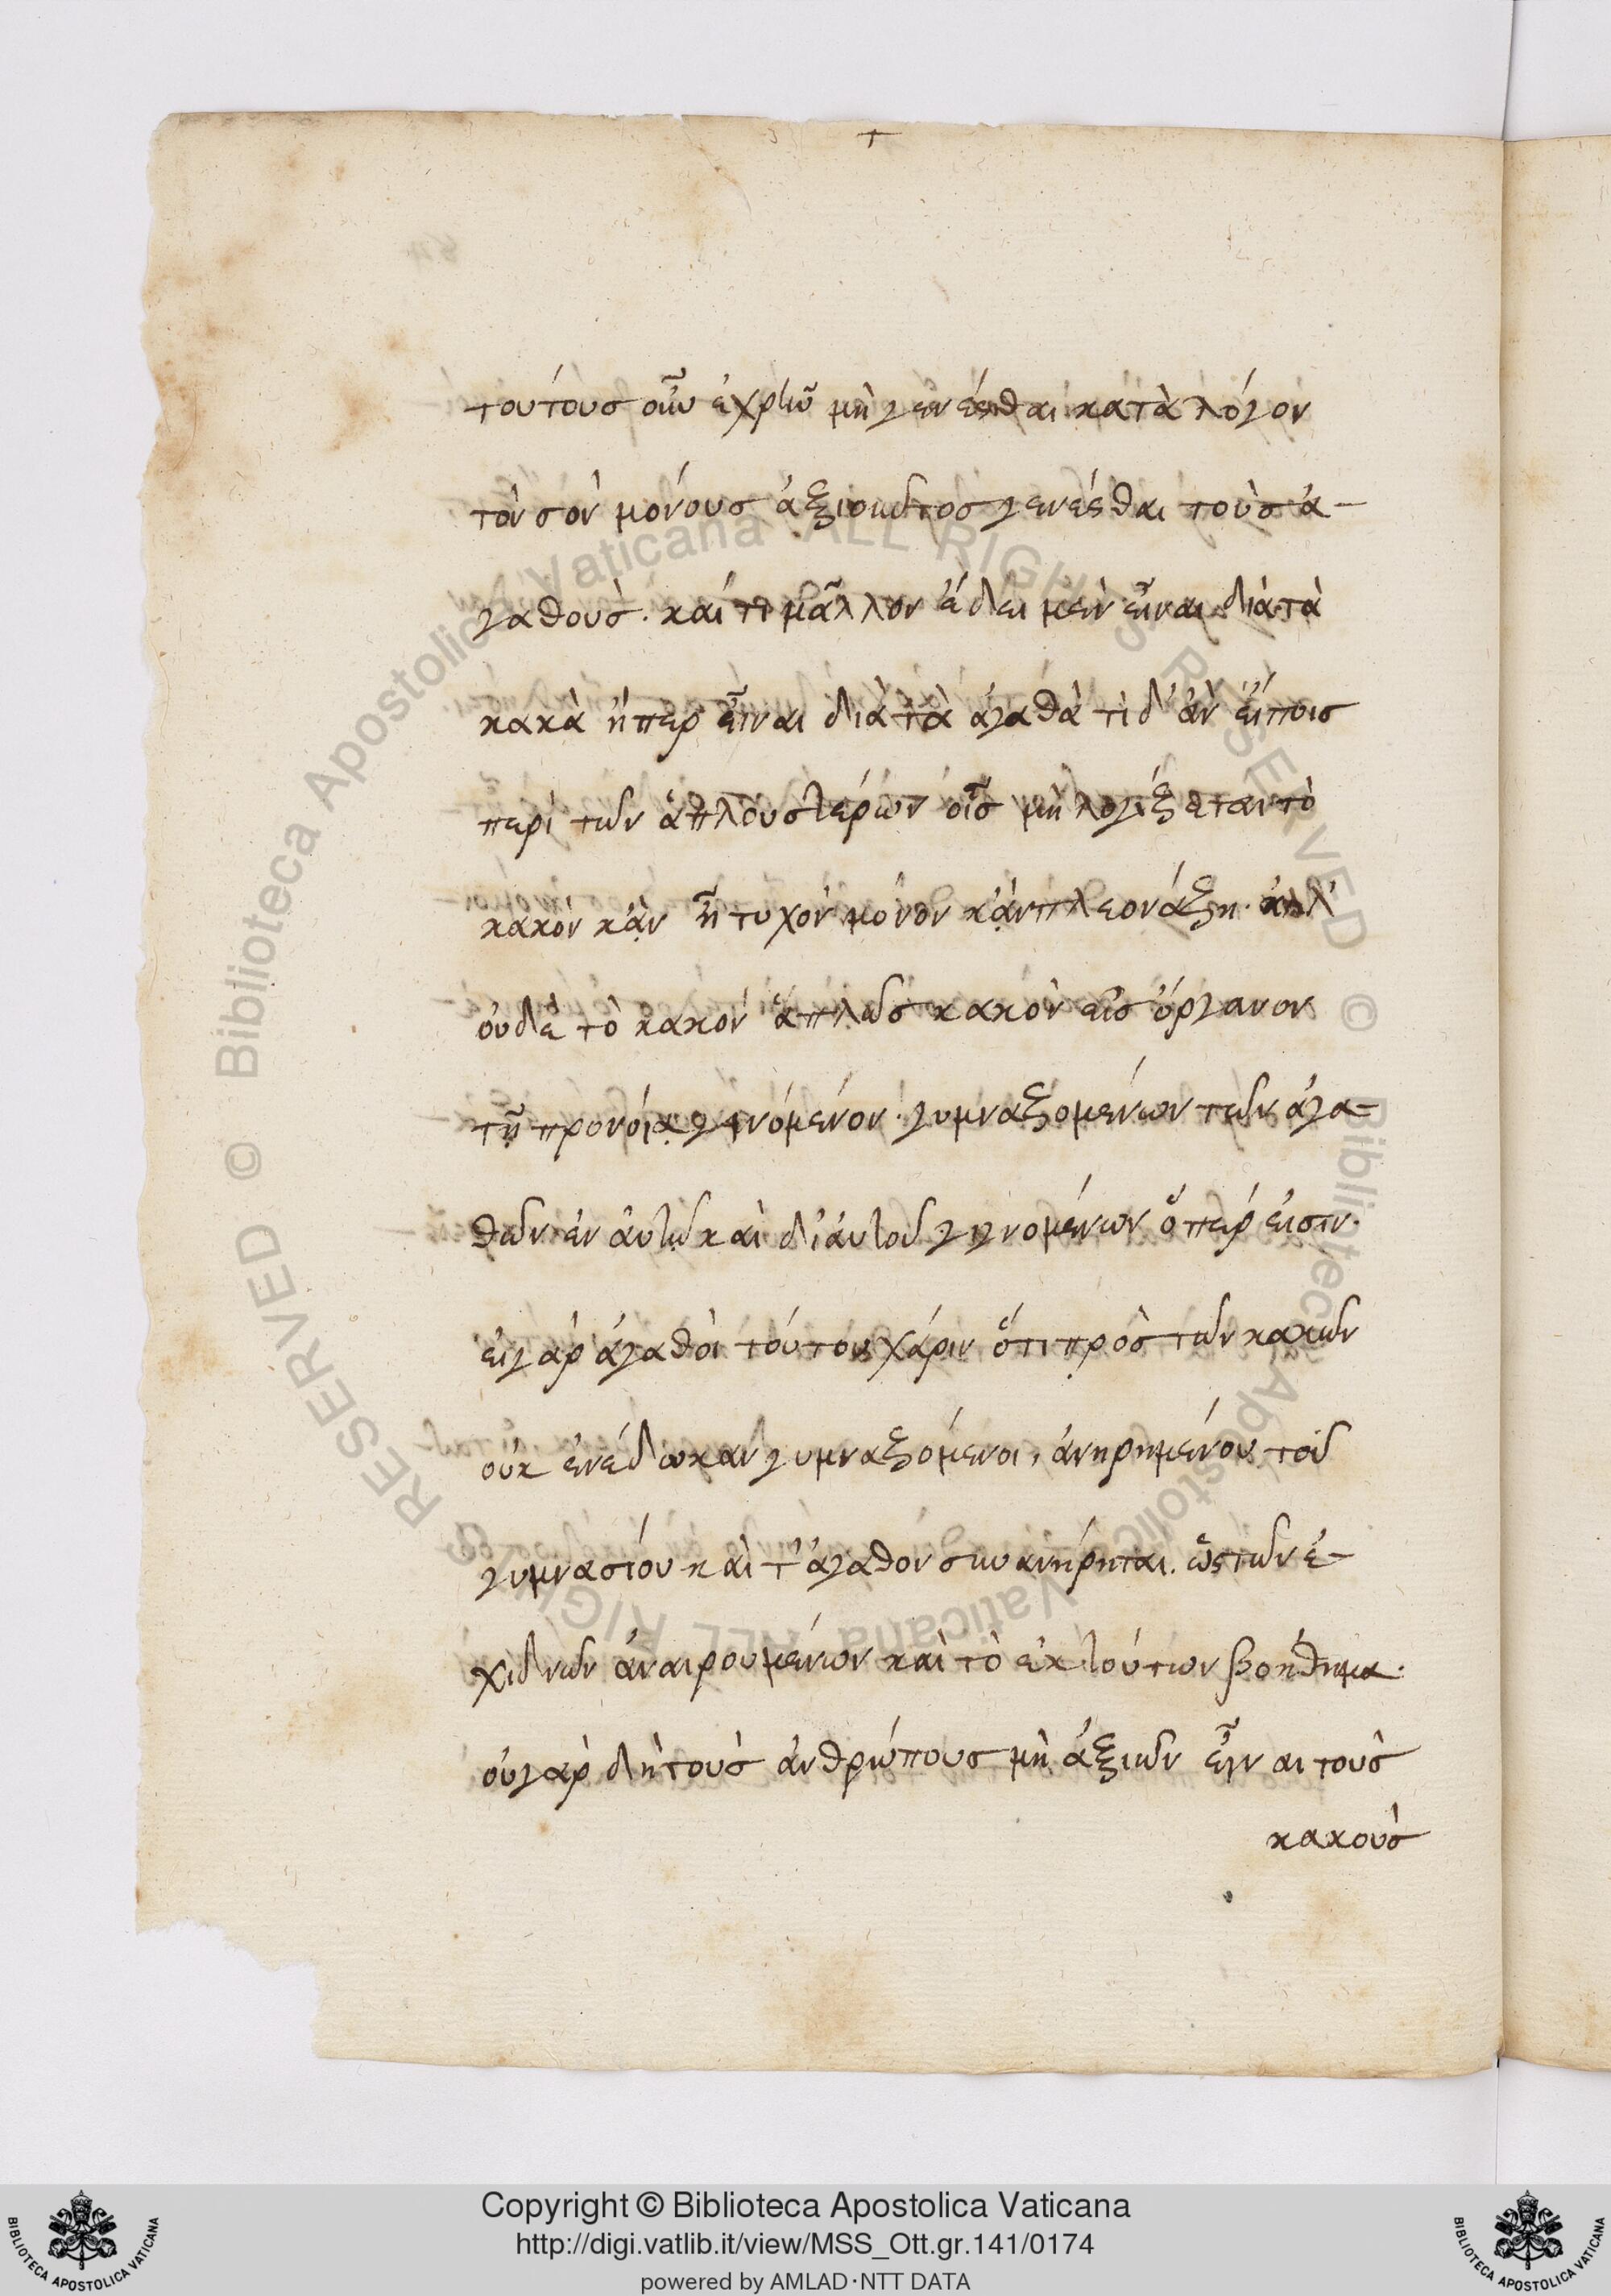 τούτους οὖν ἐχρῆν μὴ γενέσθαι κατὰ λόγον
τὸν σὸν μόνους ἀξιοῦντος γενέσθαι τοὺς ἀ-
γαθοὺς. καί τι μᾶλλον ἔδει μὲν εἶναι διὰ τὰ
κακὰ ἤπερ εἶναι διὰ τὰ ἀγαθὰ τὶ δ' ἂν εἴποις
περὶ τῶν ἁπλουστέρων οἷς μὴ λογίζεται τὸ
κακὸν κᾂν ᾖ τυχὸν μόνον κᾂν πλεονάζῃ. ἀλλ'
οὐδὲ τὸ κακὸν ἁπλῶς κακὸν εἰς ὄργανον
τῇ προνοίᾳ γινόμενον. γυμναζομένων τῶν ἀγα-
θῶν ἐν αὐτῷ καὶ δι' αὐτοῦ γινομένων ὅπερ εἰσιν.
εἰ γὰρ ἀγαθοὶ τούτου χάριν ὅτι πρὸς τῶν κακῶν
οὐκ ἐνέδωκαν γυμναζόμενοι, ἀνῃρημένου τοῦ
γυμνασίου καὶ τ' ἀγαθον συνανήρηται. ὡς τῶν ἐ-
χιδνῶν ἀναιρουμένων καὶ τὸ ἐκ τούτων βοήθημα.
οὐ γὰρ δὴ τοὺς ἀνθρώπους μὴ ἀξιῶν εἶναι τοὺς
κακοὺς
Copyright © Biblioteca Apostolica Vaticana
http://digi.vatlib.it/view/MSS_Ott.gr.141/0174
powered by AMLAD·NTT DATA
BIBLIOTECA APOSTOLICA VATICANA
BIBLIOTECA APOSTOLICA VATICANA
© Biblioteca Apostolica Vaticana ALL RIGHTS RESERVED
© Biblioteca Apostolica Vaticana ALL RIGHTS RESERVED